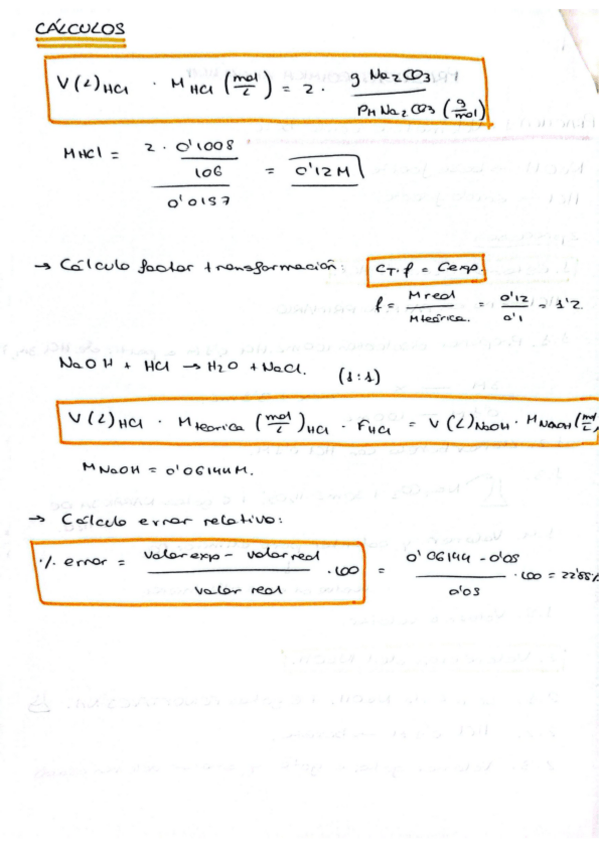 CÁLCULOS
V(L)HCl · MHCl (mol/L) = 2 · g Na2CO3 / PM Na2CO3 (g/mol)
MHCl = 2 · 0'1008/106 / 0'0157 = 0'12M
→ Cálculo factor transformación: CT·f = Cexp.
f = Mreal/Mteórica. = 0'12/0'1 = 1'2
NaOH + HCl → H2O + NaCl. (1:1)
V(L)HCl · Mteorica (mol/L)HCl · FHCl = V(L)NaOH · MNaOH (mol/L)
MNaOH = 0'06144M.
→ Cálculo error relativo:
·/. error = valor exp - valor real / valor real · 100 = 0'06144 - 0'05 / 0'05 · 100 = 22'88%